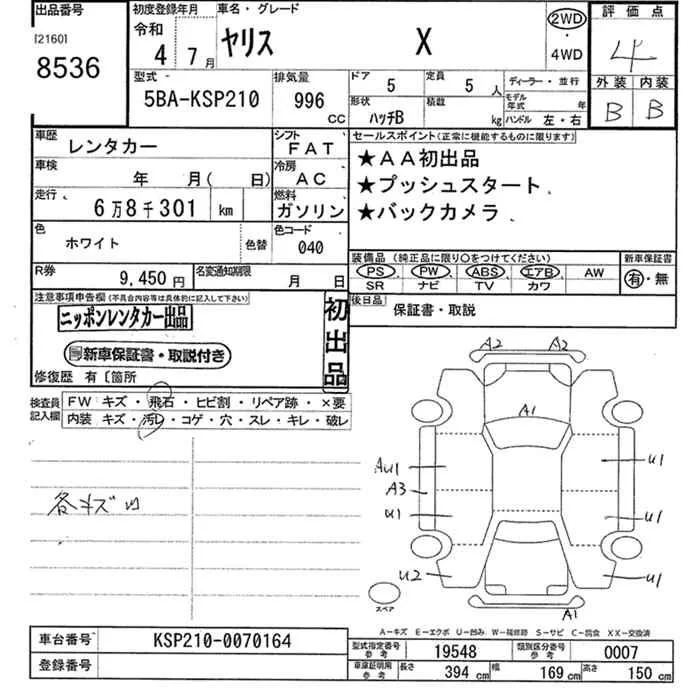 出品番号 初度登録年月 車名・グレード 評価点
[2160] 8536 令和 4年 7月 ヤリス X 2WD ・ 4WD 4
型式 5BA-KSP210 排気量 996 CC ドア 5 定員 5 人 ディーラー・並行 外装 内装
形状 ハッチB 積載 kg モデル年式 年 ハンドル 左・右 B B
車歴 レンタカー シフト FAT セールスポイント(正常に機能するものに限ります)
車検 年 月( 日) 冷房 AC ★AA初出品
★プッシュスタート
走行 6万8千301 km 燃料 ガソリン ★バックカメラ
色 ホワイト 色替 色コード 040
装備品(純正品に限り○をつけてください) 新車保証書
PS PW ABS エアB AW 有・無
SR ナビ TV カワ
R券 9,450円 名変通知期限 月 日
注意事項申告欄(不具合内容等は具体的に記入して下さい) 後日品 保証書・取説
ニッポンレンタカー出品 初出品
新車保証書・取説付き
修復歴 有 〔箇所
検査員記入欄 FW キズ・飛石・ヒビ割・リペア跡・×要
内装 キズ・汚レ・コゲ・穴・スレ・キレ・破レ
A2 A2
A1
AU1 U1
A3
各キズ凹
U1 U1
U2 U1
スペア A1
A-キズ E-エクボ U-凹み W-補修跡 S-サビ C-腐食 XX-交換済
車台番号 KSP210-0070164 型式指定番号 参考 19548 類別区分番号 参考 0007
登録番号 車庫証明用 参考 長さ 394 cm 幅 169 cm 高さ 150 cm